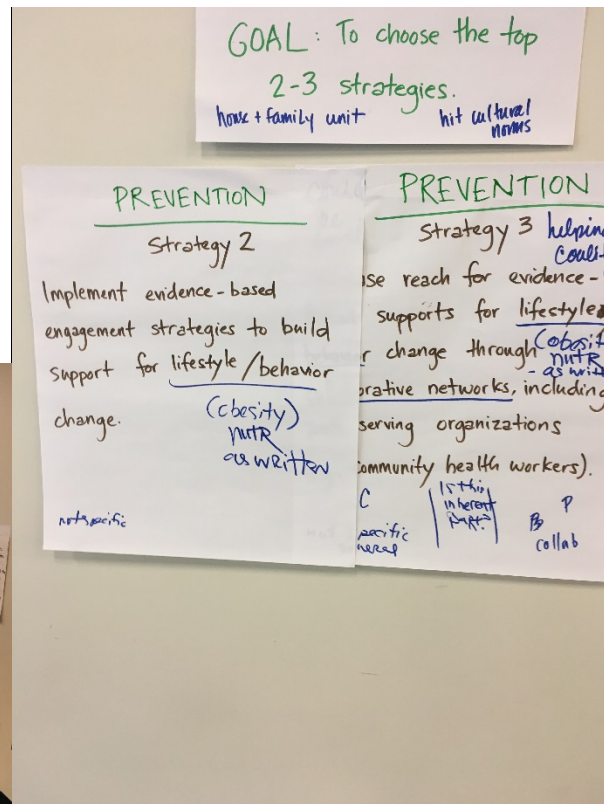 GOAL: To choose the top
2-3 strategies.
house + family unit
hit cultural
norms
PREVENTION
Strategy 2
Implement evidence-based
engagement strategies to build
support for lifestyle/behavior
change.
(obesity)
nutr
as written
not specific
PREVENTION
Strategy 3 helping
Coali
se reach for evidence-
supports for lifestyle
r change through (obesit
nutr
- as writt
orative networks, including
serving organizations
ommunity health workers).
C
pecific
Is this
inherent
part?
P
collab